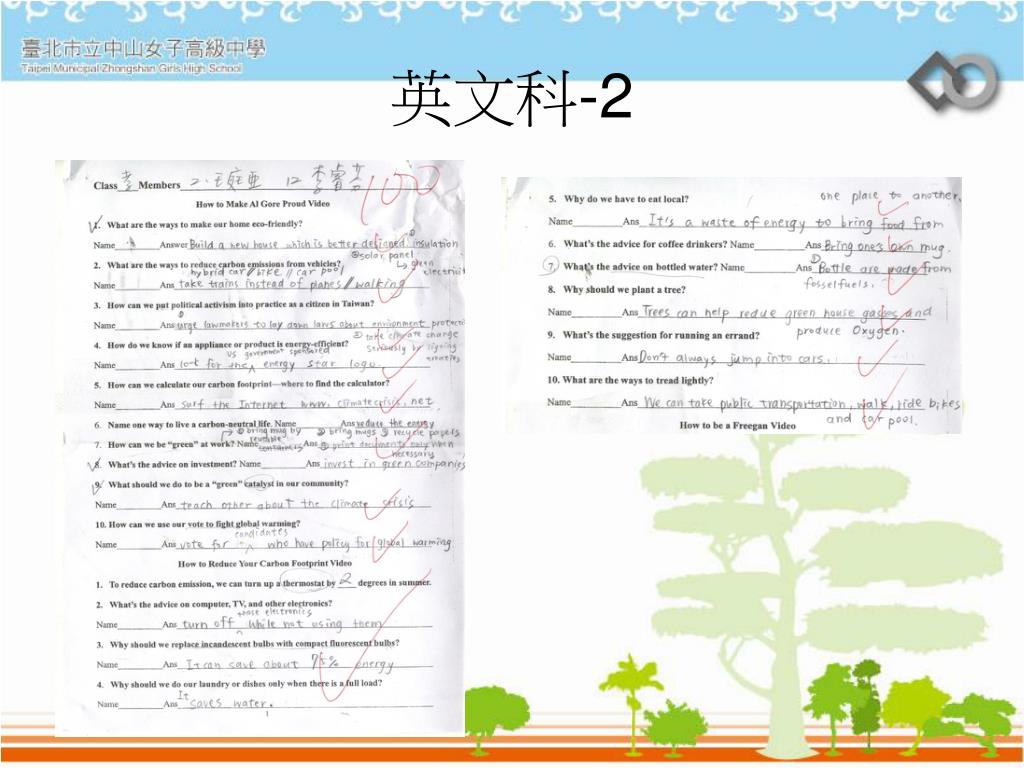 臺北市立中山女子高級中學
Taipei Municipal Zhongshan Girls High School
英文科-2
Class 孝 Members 2.王庭亞 12 李睿芸
100
How to Make Al Gore Proud Video
1. What are the ways to make our home eco-friendly?
Name Answer Build a new house which is better designed, insulation
② solar panel
2. What are the ways to reduce carbon emissions from vehicles? green electricity
hybrid car // bike // car pool
Name Ans take trains instead of planes // walking
3. How can we put political activism into practice as a citizen in Taiwan?
Name Ans urge lawmakers to lay down laws about environment protecti
② take climate change seriously by signing
4. How do we know if an appliance or product is energy-efficient?
US government sponsored
Name Ans look for the energy star logo.
5. How can we calculate our carbon footprint—where to find the calculator?
Name Ans surf the Internet www.climatecrisis.net
6. Name one way to live a carbon-neutral life. Name Ans reduce the energy
① bring mug by reusable containers ② bring mugs ③ recycle papers
7. How can we be “green” at work? Name Ans ④ print documents only when necessary
8. What's the advice on investment? Name Ans invest in green companies
9. What should we do to be a “green” catalyst in our community?
Name Ans teach other about the climate crisis
10. How can we use our vote to fight global warming?
candidates
Name Ans vote for who have policy for global warming
How to Reduce Your Carbon Footprint Video
1. To reduce carbon emission, we can turn up a thermostat by 2 degrees in summer.
2. What's the advice on computer, TV, and other electronics?
those electronics
Name Ans turn off while not using them
3. Why should we replace incandescent bulbs with compact fluorescent bulbs?
Name Ans It can save about 75% energy
4. Why should we do our laundry or dishes only when there is a full load?
Name Ans It saves water.
1
5. Why do we have to eat local? one place to another.
Name Ans It's a waste of energy to bring food from
6. What's the advice for coffee drinkers? Name Ans Bring one's own mug.
7. What's the advice on bottled water? Name Ans Bottle are made from
fosselfuels.
8. Why should we plant a tree?
Name Ans Trees can help redue green house gasses and
produce Oxygen.
9. What's the suggestion for running an errand?
Name Ans Don't always jump into cars.
10. What are the ways to tread lightly?
Name Ans We can take public transportation, walk, ride bikes
and car pool.
How to be a Freegan Video